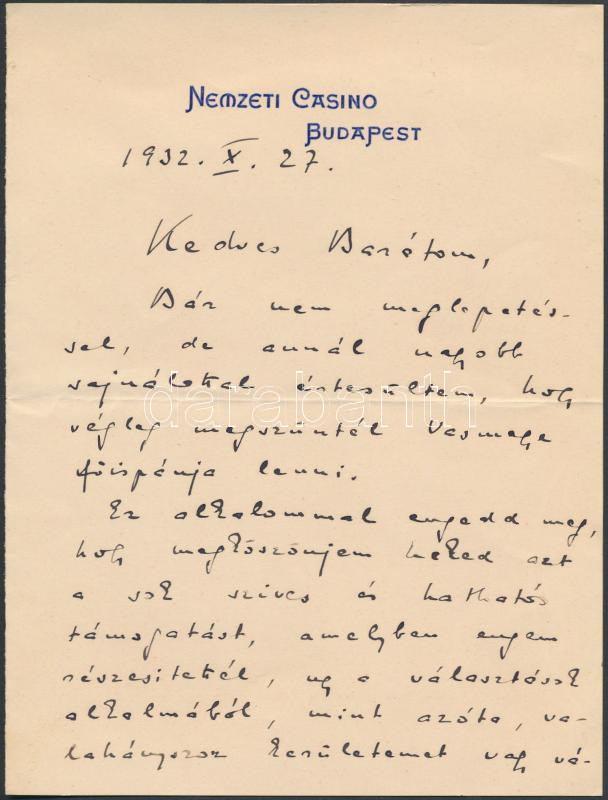 NEMZETI CASINO
BUDAPEST
1932. X. 27.
Kedves Barátom,
Bár nem meglepetés-
sel, de annál nagyobb
sajnálattal értesültem, hogy
végleg megszüntél Vasmegye
főispánja lenni.
Ez alkalommal engedd meg,
hogy megköszönjem neked azt
a sok szives és hathatós
támogatást, amelyben engem
részesitettél, ugy a választások
alkalmából, mint azóta, va-
lahányszor kerületemet vagy vá-
darabanth